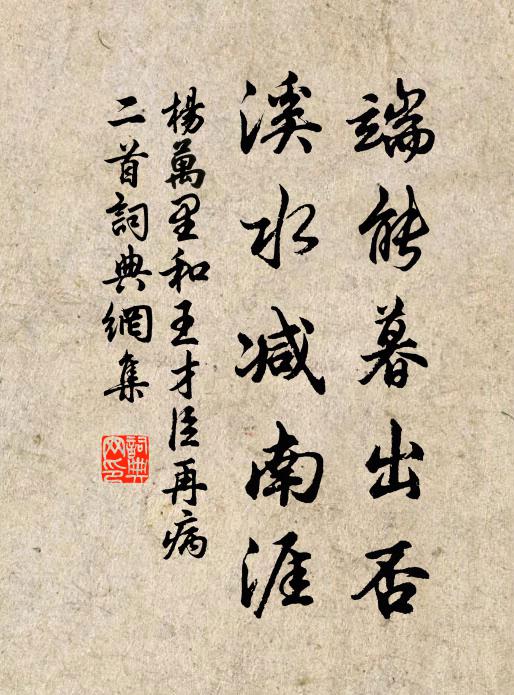 端能暮出否
溪水減南涯
楊萬里和王才臣再病
二首詞典網集
詞典網印